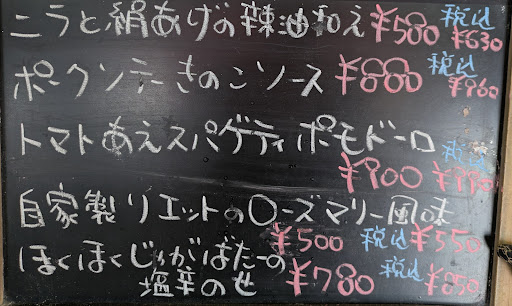 ニラと絹あげの辣油和え ¥580 税込 ¥630
ポークソテーきのこソース ¥880 税込 ¥960
トマトあえスパゲティポモドーロ
¥900 税込 ¥990
自家製リエットのローズマリー風味
¥500 税込 ¥550
ほくほくじゃがばたーの
塩辛のせ ¥780 税込 ¥850